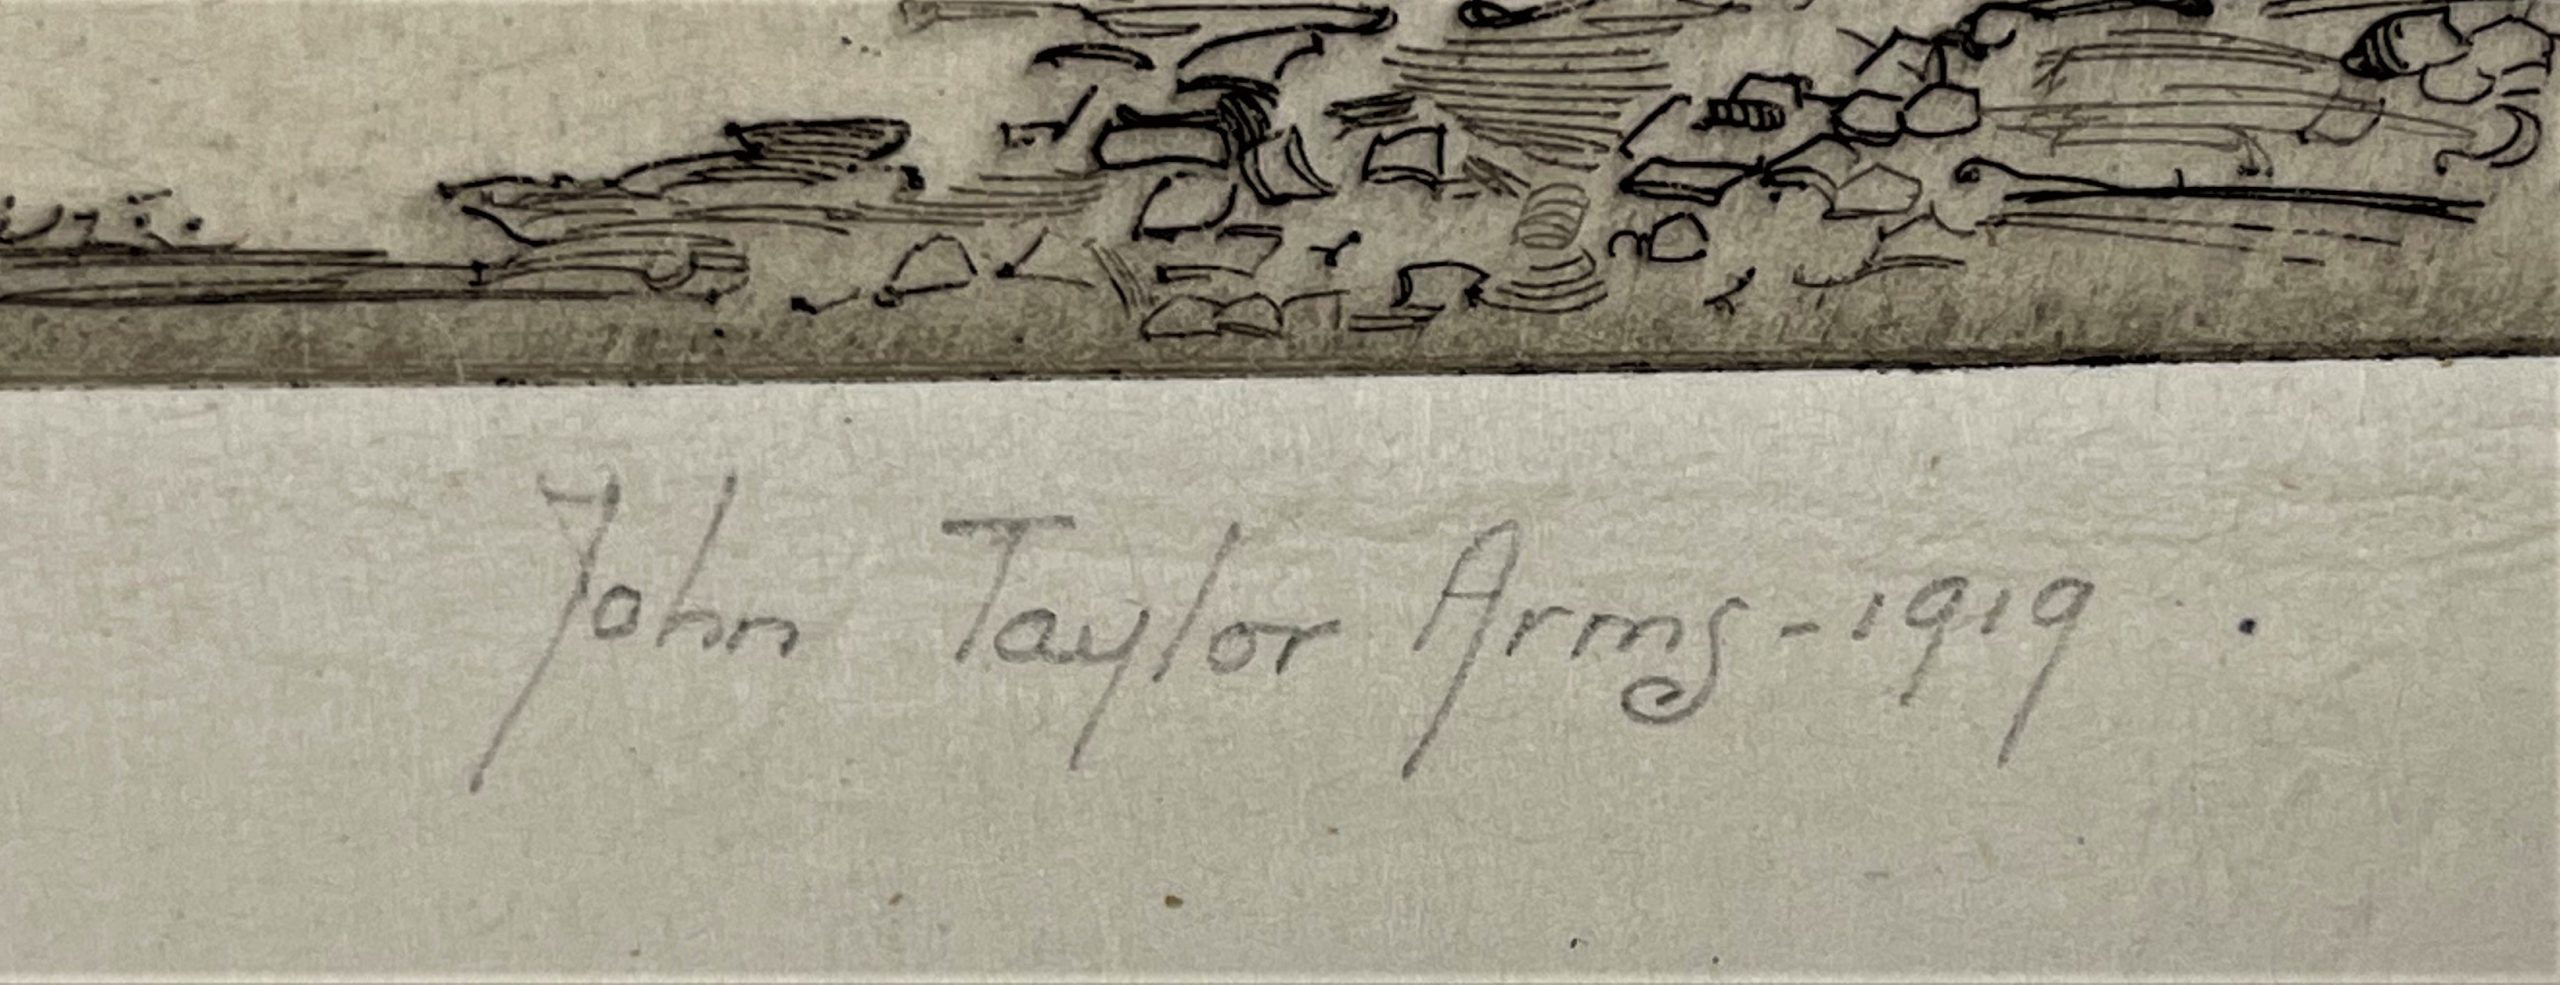 John Taylor Arms - 1919